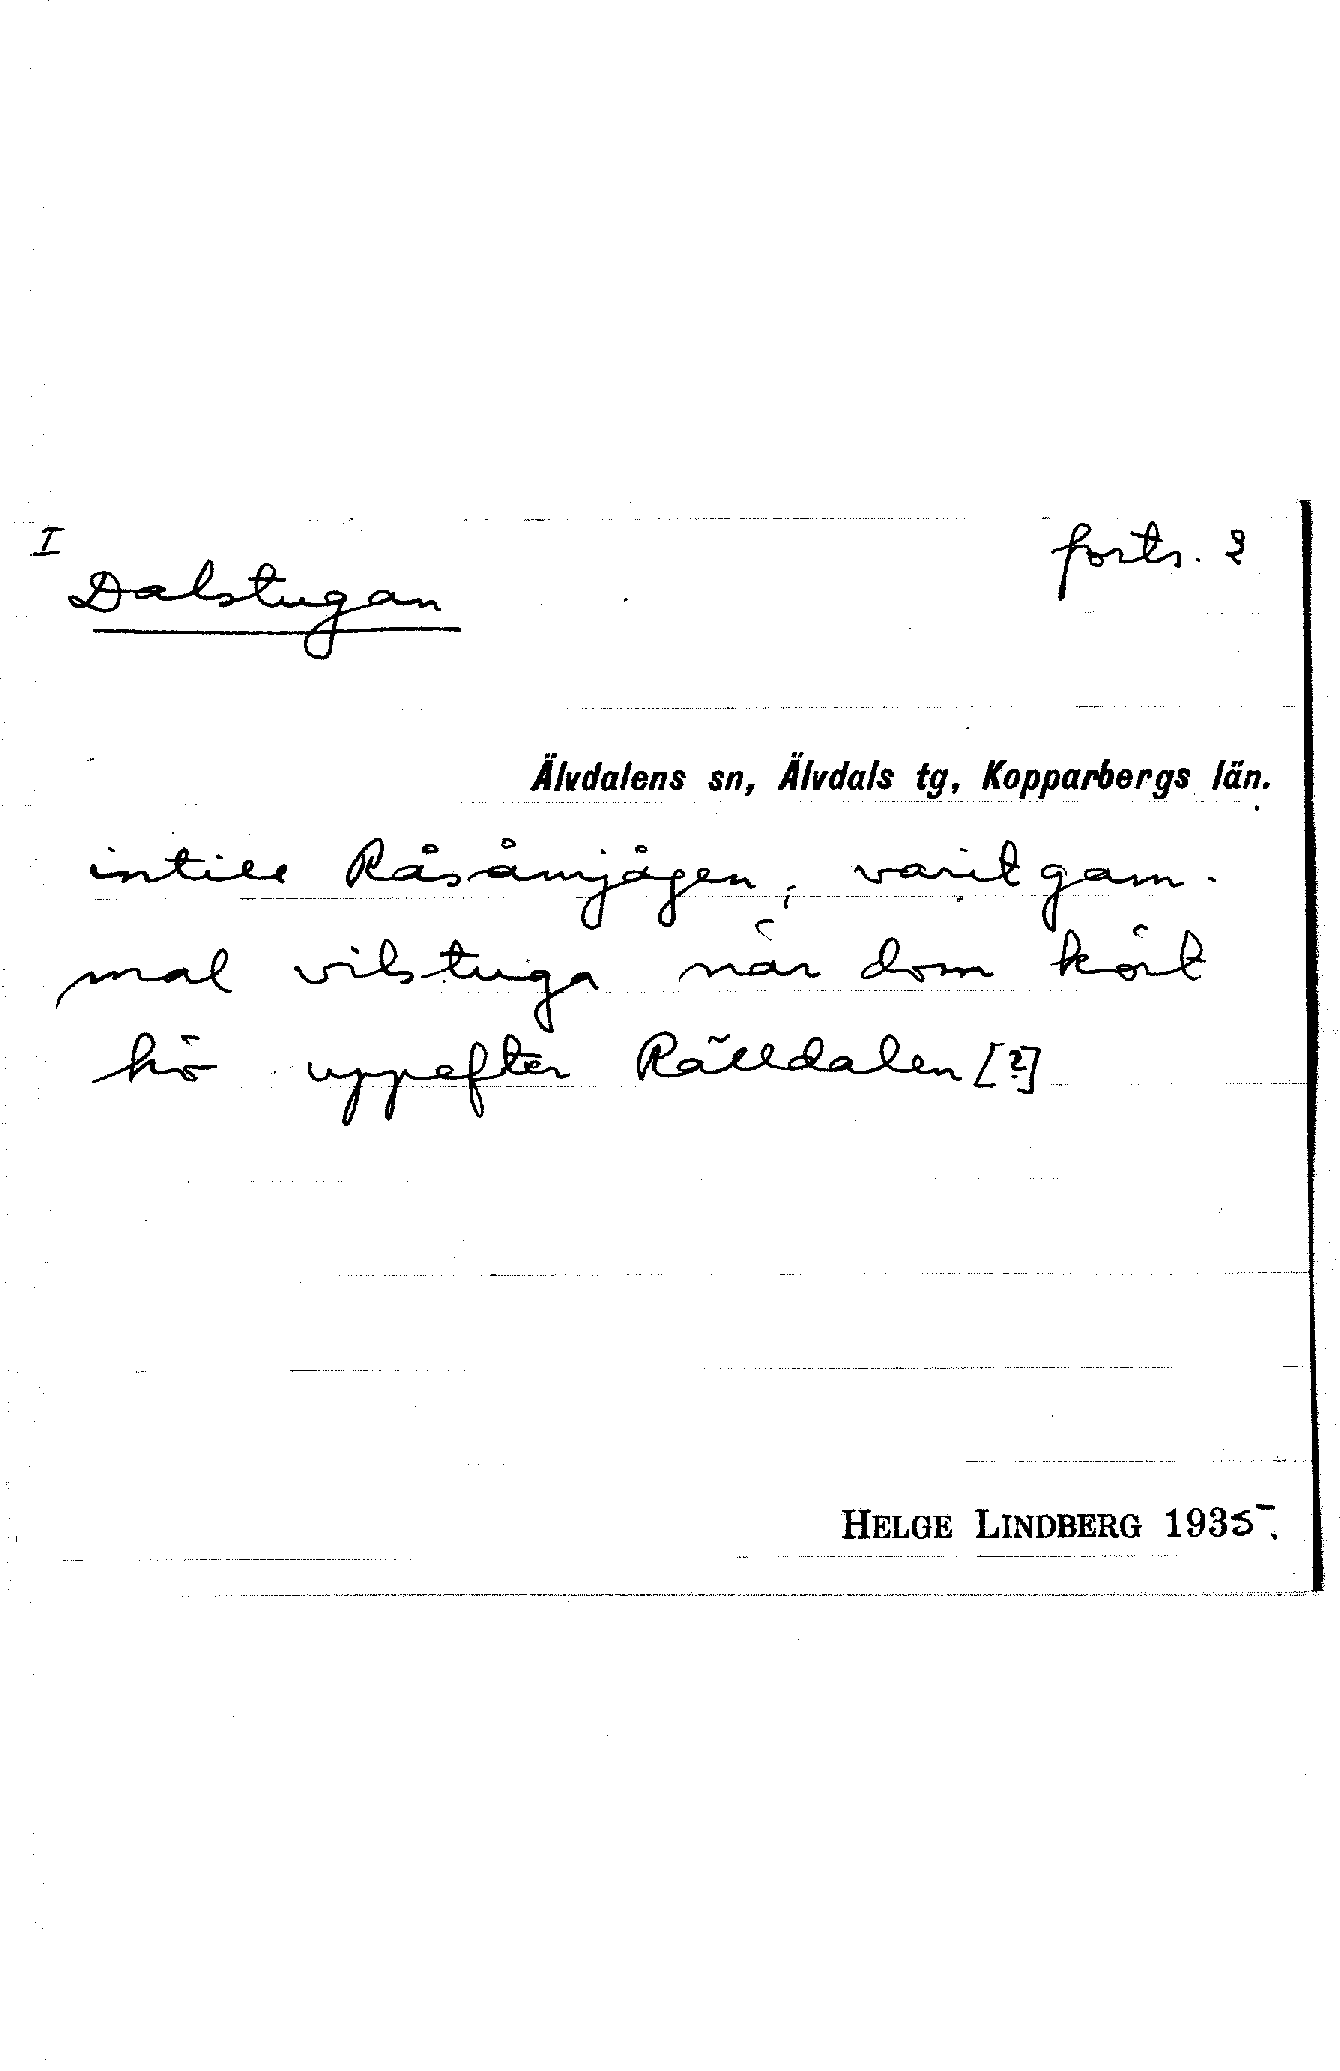 I
forts. 2
Dalstugan
Älvdalens sn, Älvdals tg, Kopparbergs län.
intill Råsåmjågen, varit gam-
mal vilstuga när dom kört
hö uppefter Rälldalen [?]
HELGE LINDBERG 1935.